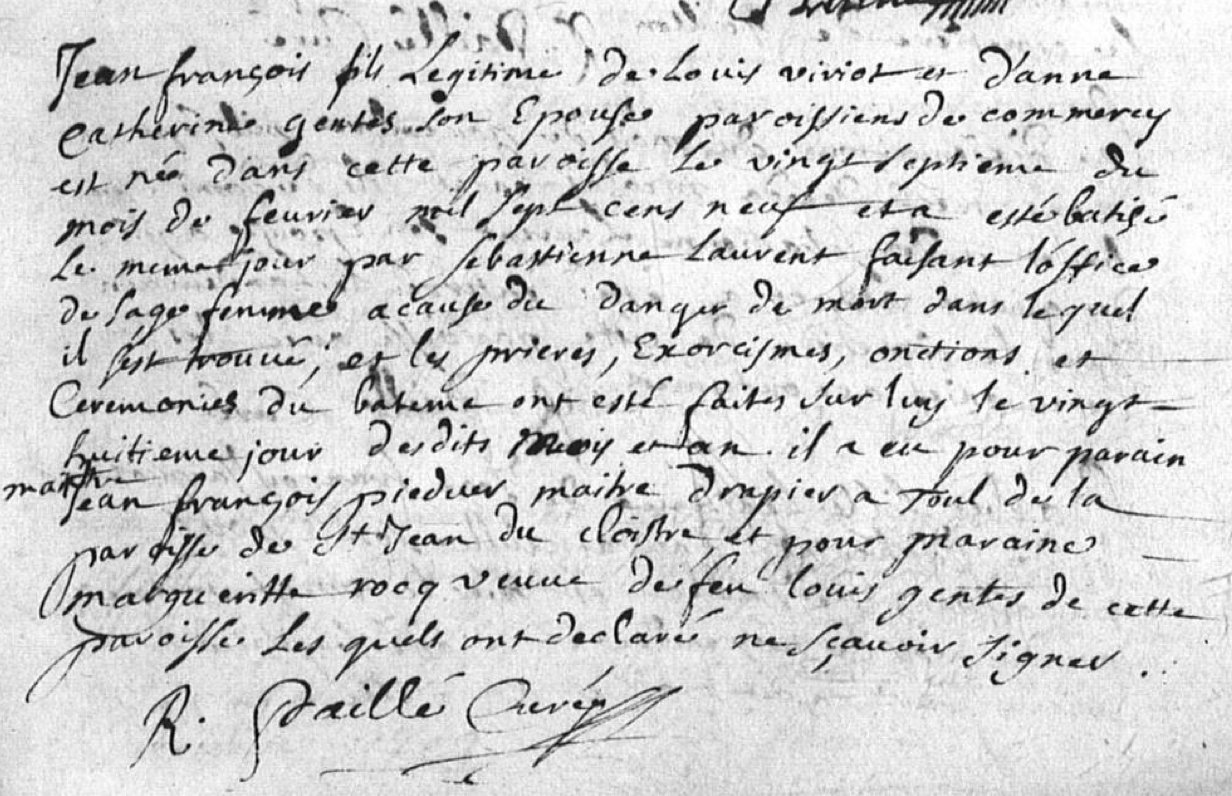 Jean françois fils Legitime de Louis viriot et d'anne
Catherine gentes son Epouse paroissiens de commercy
est née dans cette paroisse le vingt septieme du
mois de feurier mil sept cens neuf et a esté batisé
le meme jour par sebastienne Laurent faisant l'office
de sage femme a cause du danger de mort dans le quel
il sest trouué, et les prieres, Exorcismes, onctions et
Ceremonies du bateme ont esté faites sur luy le vingt
huitieme jour desdits mois et an. il a eu pour parain
maitre
Jean françois pieduer maitre drapier a Toul de la
paroisse de St Jean du cloistre et pour maraine
margueritte rocq veuue de feu louis gentes de cette
paroisse Les quels ont declaré ne sçauoir signer.
R. Curé